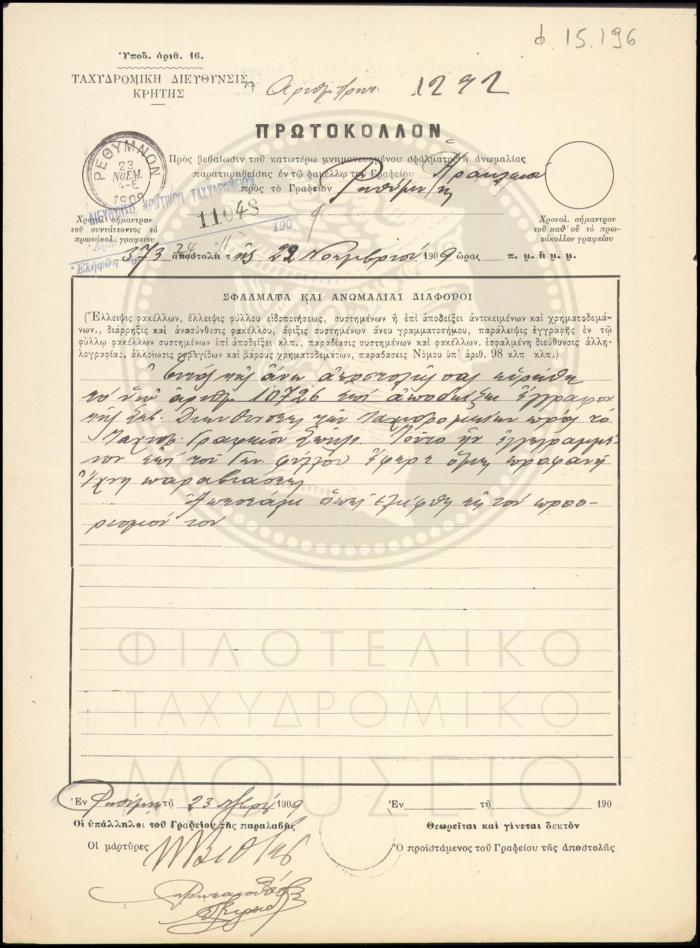 φ. 15.196
Ὑποδ. ἀριθ. 16.
ΤΑΧΥΔΡΟΜΙΚΗ ΔΙΕΥΘΥΝΣΙΣ
ΚΡΗΤΗΣ
1292
ΠΡΩΤΟΚΟΛΛΟΝ
Πρὸς βεβαίωσιν τοῦ κατωτέρω μνημονευομένου σφάλματος ἢ ἀνωμαλίας
παρατηρηθείσης ἐν τῷ φακέλλῳ τοῦ Γραφείου Ἡρακλείου
πρὸς τὸ Γραφεῖον Ρεθύμνης
ΡΕΘΥΜΝΟΝ
23
ΝΟΕΜ.
4-Ε
1909
11048
190
Χρονολ. σήμαντρον
τοῦ συντάττοντος τὸ
πρωτόκολ. γραφείου
Χρονολ. σήμαντρον
τοῦ καθ' οὗ τὸ πρω-
τόκολλον γραφείου
373 ἀποστολὴ τῆς 22 Νοεμβρίου 1909 ὥρας π. μ. ἢ μ. μ.
ΣΦΑΛΜΑΤΑ ΚΑΙ ΑΝΩΜΑΛΙΑΙ ΔΙΑΦΟΡΟΙ
(Ἔλλειψις φακέλλων, ἔλλειψις φύλλου εἰδοποιήσεως, συστημένων ἢ ἐπὶ ἀποδείξει ἀντικειμένων καὶ χρηματοδεμά-
των., διάρρηξις καὶ ἀνασύνθεσις φακέλλου, ἄφιξις συστημένων ἄνευ γραμματοσήμου, παράλειψις ἐγγραφῆς ἐν τῷ
φύλλῳ φακέλλων συστημένων ἐπὶ ἀποδείξει κλπ., παραβίασις συστημένων καὶ φακέλλων, ἐσφαλμένη διεύθυνσις ἀλλη-
λογραφίας, ἀλλοίωσις σφραγίδων καὶ βάρους χρηματοδεμάτων, παραβάσεις Νόμου ὑπ' ἀριθ. 98 κλπ κλπ.)
Ἐντὸς τῆς ἄνω ἀποστολῆς σας εὑρέθη
τὸ ὑπ' ἀριθμ. 10726 ἐπὶ ἀποδείξει ἔγγραφον
τῆς Διευθύνσεως τῶν Ταχυδρομείων πρὸς τὸ
Ταχυδ. Γραφεῖον Τοῦτο ἦν ἐγγεγραμμέ-
νον ἐπὶ τοῦ φύλλου ἔφερε ὅμως προφανῆ
ἴχνη παραβιάσεως
τὸν προο-
ρισμόν του
ΦΙΛΟΤΕΛΙΚΟ
ΤΑΧΥΔΡΟΜΙΚΟ
ΜΟΥΣΕΙΟ
Ἐν Ρεθύμνῃ τῇ 23 9βρίου 1909
Οἱ ὑπάλληλοι τοῦ Γραφείου τῆς παραλαβῆς
Οἱ μάρτυρες
Ἐν τῇ 190
Θεωρεῖται καὶ γίνεται δεκτὸν
Ὁ προϊστάμενος τοῦ Γραφείου τῆς ἀποστολῆς